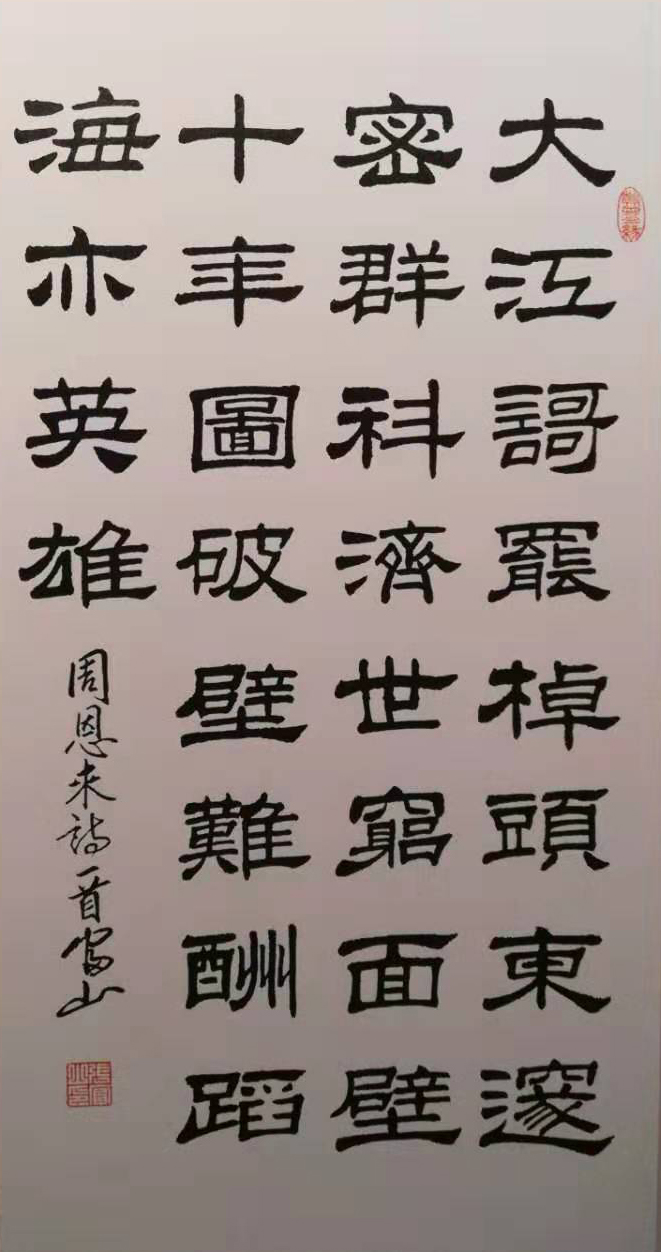 大江謌罷棹頭東邃
密群科濟世窮面壁
十年圖破壁難酬蹈
海亦英雄
周恩来詩一首富山